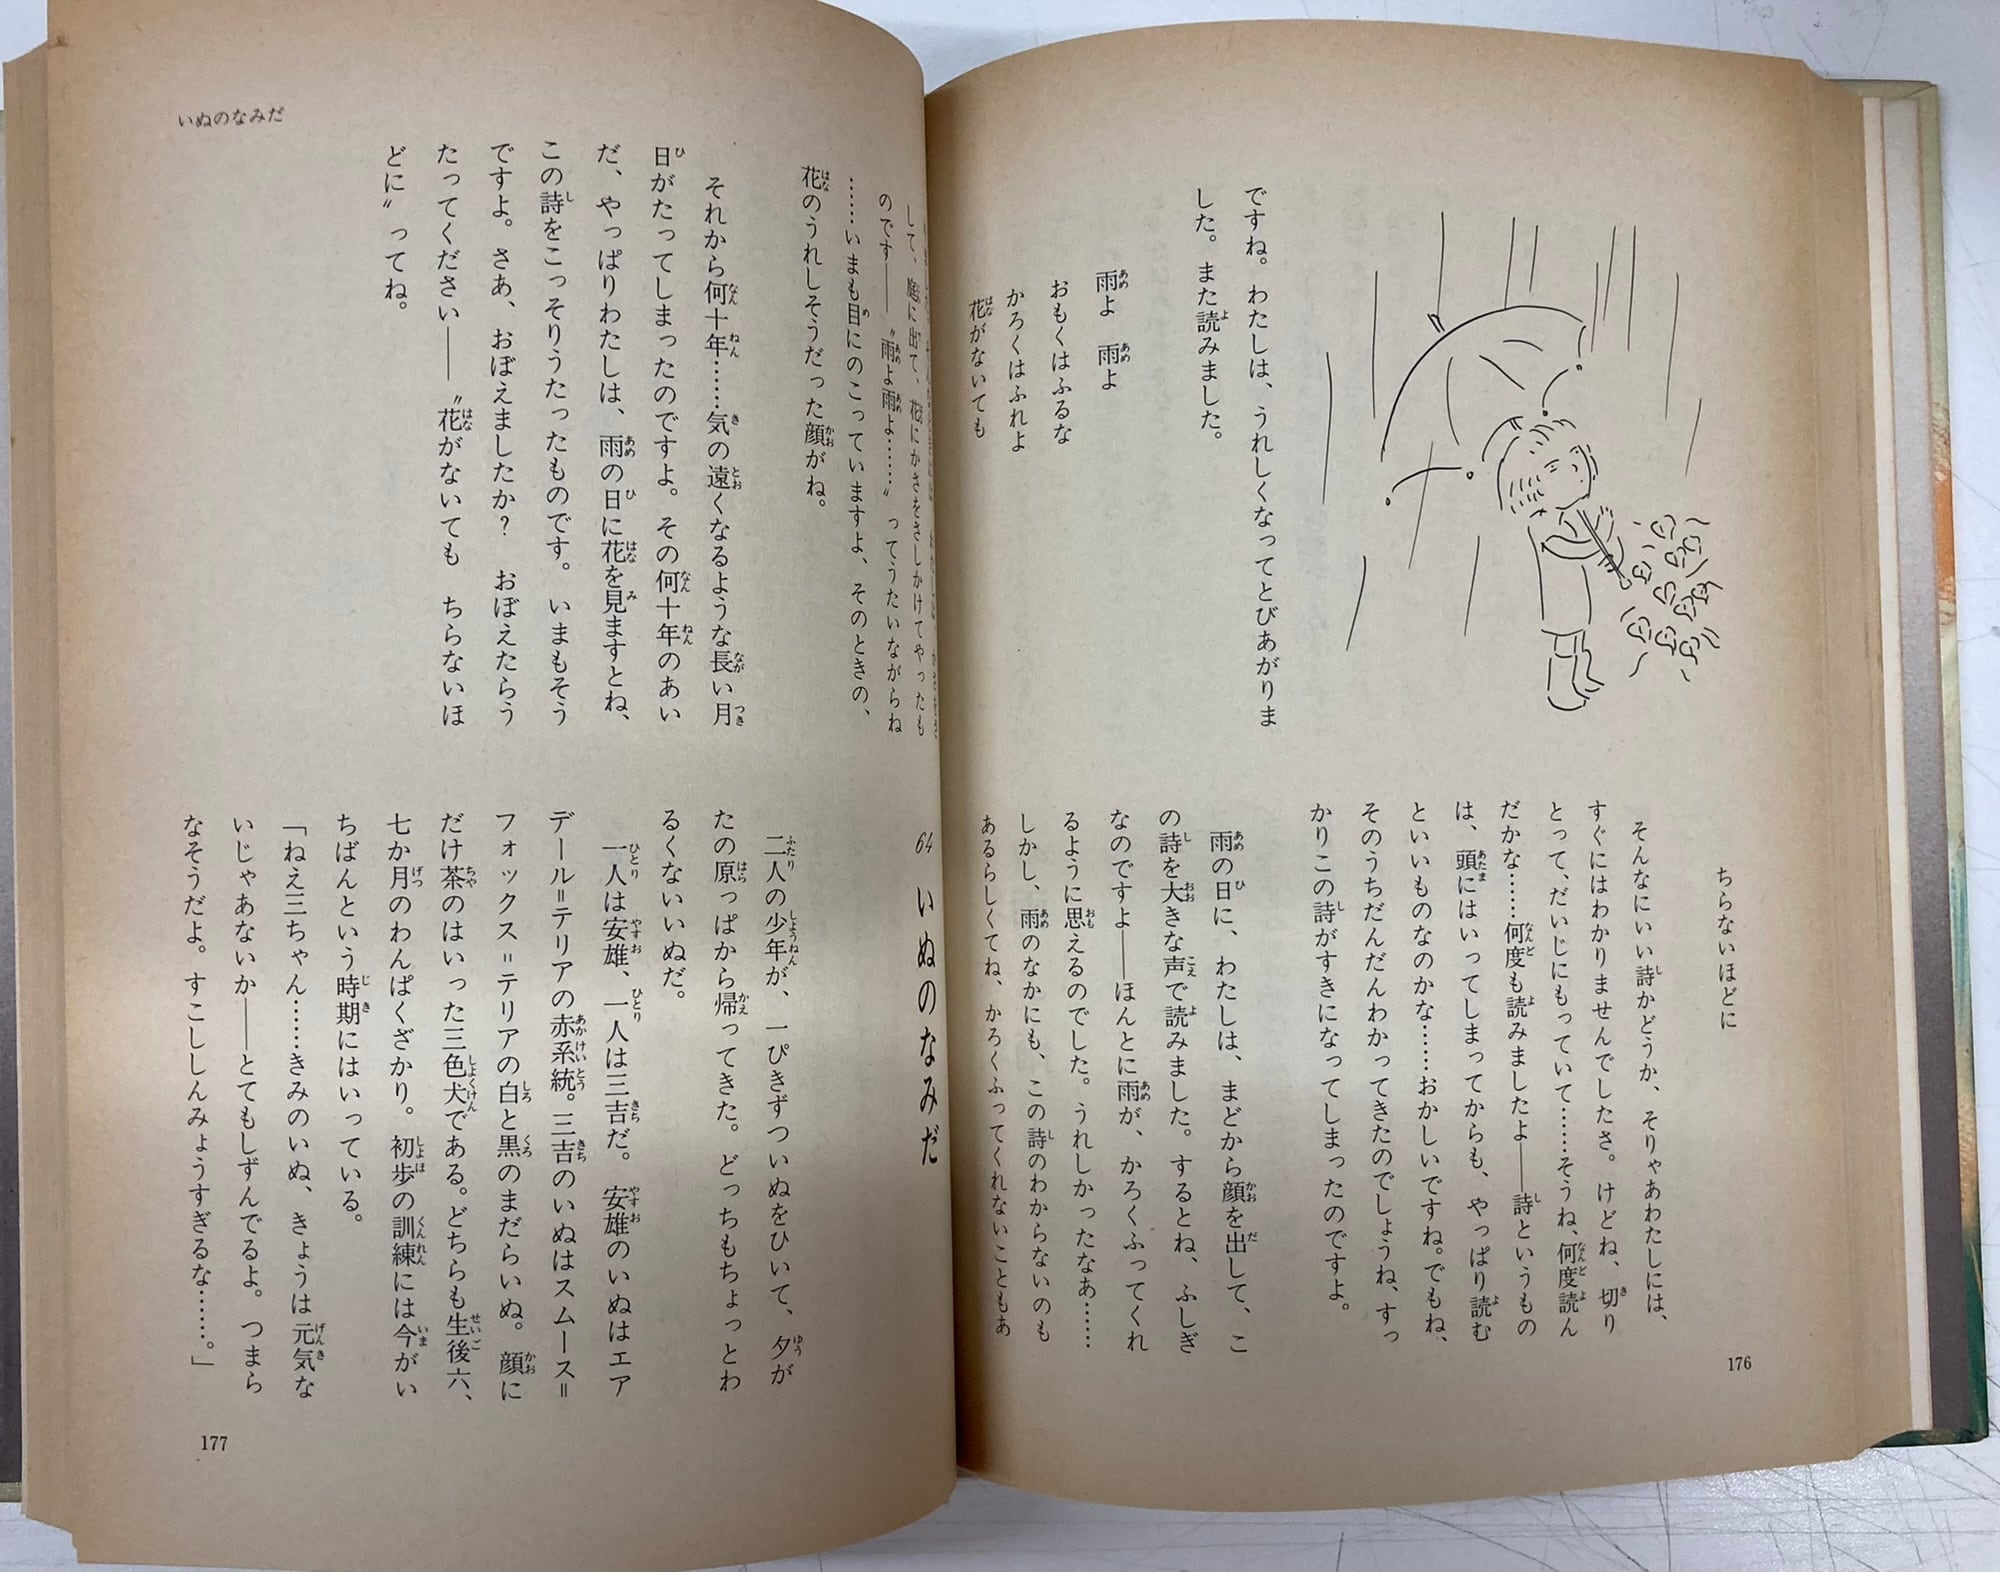 ですね。わたしは、うれしくなってとびあがりま
した。また読みました。
雨よ　雨よ
おもくはふるな
かろくはふれよ
花がないても
ちらないほどに
そんなにいい詩かどうか、そりゃあわたしには、
すぐにはわかりませんでしたさ。けどね、切り
とって、だいじにもっていて……そうね、何度読ん
だかな……何度も読みましたよ――詩というもの
は、頭にはいってしまってからも、やっぱり読む
といいものなのかな……おかしいですね。でもね、
そのうちだんだんわかってきたのでしょうね、すっ
かりこの詩がすきになってしまったのですよ。
雨の日に、わたしは、まどから顔を出して、こ
の詩を大きな声で読みました。するとね、ふしぎ
なのですよ――ほんとに雨が、かろくふってくれ
るように思えるのでした。うれしかったなあ……
しかし、雨のなかにも、この詩のわからないのも
あるらしくてね、かろくふってくれないこともあ
176
して、庭に出て、花にかさをさしかけてやったも
のです――〝雨よ雨よ……〟ってうたいながらね
……いまも目にのこっていますよ、そのときの、
花のうれしそうだった顔がね。
それから何十年……気の遠くなるような長い月
日がたってしまったのですよ。その何十年のあい
だ、やっぱりわたしは、雨の日に花を見ますとね、
この詩をこっそりうたったものです。いまもそう
ですよ。さあ、おぼえましたか？　おぼえたらう
たってください――〝花がないても　ちらないほ
どに〟ってね。
64　いぬのなみだ
二人の少年が、一ぴきずついぬをひいて、夕が
たの原っぱから帰ってきた。どっちもちょっとわ
るくないいぬだ。
一人は安雄、一人は三吉だ。安雄のいぬはエア
デール＝テリアの赤系統。三吉のいぬはスムース＝
フォックス＝テリアの白と黒のまだらいぬ。顔に
だけ茶のはいった三色犬である。どちらも生後六、
七か月のわんぱくざかり。初歩の訓練には今がい
ちばんという時期にはいっている。
「ねえ三ちゃん……きみのいぬ、きょうは元気な
いじゃあないか――とてもしずんでるよ。つまら
なそうだよ。すこししんみょうすぎるな……。」
いぬのなみだ
177